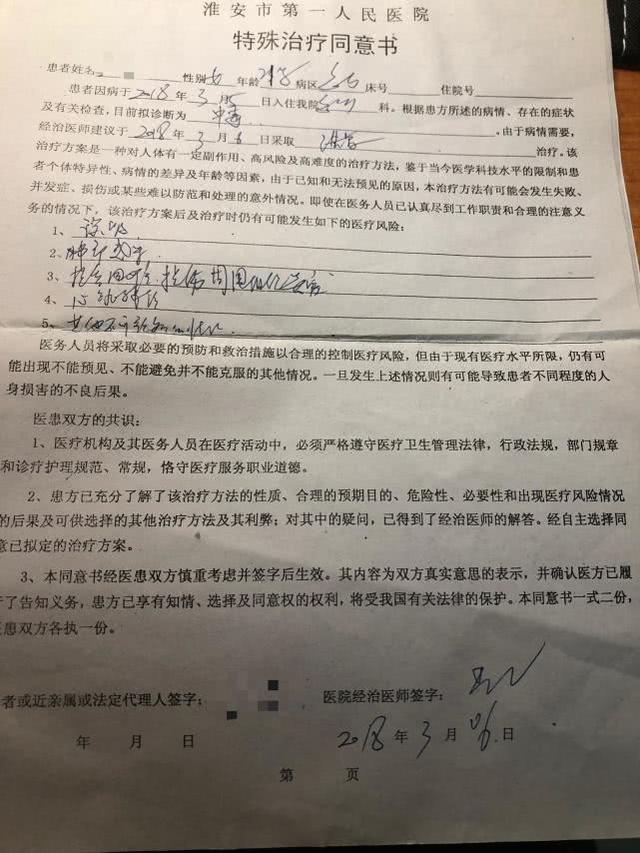 淮安市第一人民医院
特殊治疗同意书
患者姓名 性别 女 年龄 病区 床号 住院号
患者因病于 2018 年 3 月 日入住我院 科。根据患方所述的病情、存在的症状
及有关检查，目前拟诊断为 中毒 。由于病情需要，
经治医师建议于 2018 年 3 月 6 日采取 洗胃 治疗。该
治疗方案是一种对人体有一定副作用、高风险及高难度的治疗方法，鉴于当今医学科技水平的限制和患
者个体特异性、病情的差异及年龄等因素，由于已知和无法预见的原因，本治疗方法有可能会发生失败、
并发症、损伤或某些难以防范和处理的意外情况。即使在医务人员已认真尽到工作职责和合理的注意义
务的情况下，该治疗方案后及治疗时仍有可能发生如下的医疗风险：
1、
2、
3、
4、
5、
医务人员将采取必要的预防和救治措施以合理的控制医疗风险，但由于现有医疗水平所限，仍有可
能出现不能预见、不能避免并不能克服的其他情况。一旦发生上述情况则有可能导致患者不同程度的人
身损害的不良后果。
医患双方的共识：
1、医疗机构及其医务人员在医疗活动中，必须严格遵守医疗卫生管理法律，行政法规，部门规章
和诊疗护理规范、常规，恪守医疗服务职业道德。
2、患方已充分了解了该治疗方法的性质、合理的预期目的、危险性、必要性和出现医疗风险情况
的后果及可供选择的其他治疗方法及其利弊；对其中的疑问，已得到了经治医师的解答。经自主选择同
意已拟定的治疗方案。
3、本同意书经医患双方慎重考虑并签字后生效。其内容为双方真实意思的表示，并确认医方已履
行了告知义务，患方已享有知情、选择及同意权的权利，将受我国有关法律的保护。本同意书一式二份，
医患双方各执一份。
者或近亲属或法定代理人签字： 医院经治医师签字：
年 月 日 2018 年 3 月 06 日
第 页